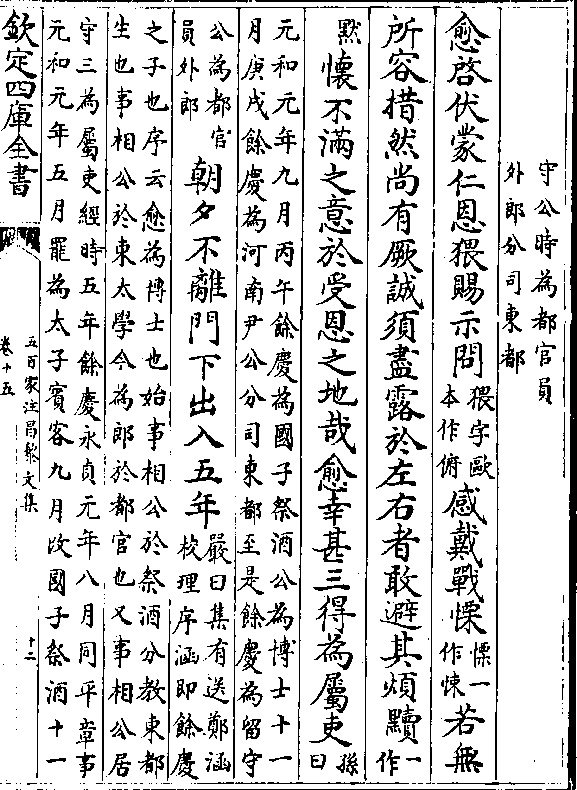 守公時為都官員
外郎分司東都
愈啓伏蒙仁恩猥賜示問猥字歐本作俯感戴戰慄慄一作悚若無
所容措然尚有厥誠須盡露於左右者敢避其煩黷一作
黙懷不滿之意於受恩之地哉愈幸甚三得為屬吏孫曰
元和元年九月丙午餘慶為國子祭酒公為博士十一
月庚戌餘慶為河南尹公分司東都至是餘慶為留守
公為都官員外郎朝夕不離門下出入五年嚴曰集有送鄭涵校理序涵即餘慶
之子也序云愈為博士也始事相公於祭酒分教東都
生也事相公於東太學今為郎於都官也又事相公居
守三為屬吏經時五年餘慶永貞元年八月同平章事
元和元年五月罷為太子賓客九月改國子祭酒十一
欽定四庫全書
五百家注昌黎文集
卷十五
十二